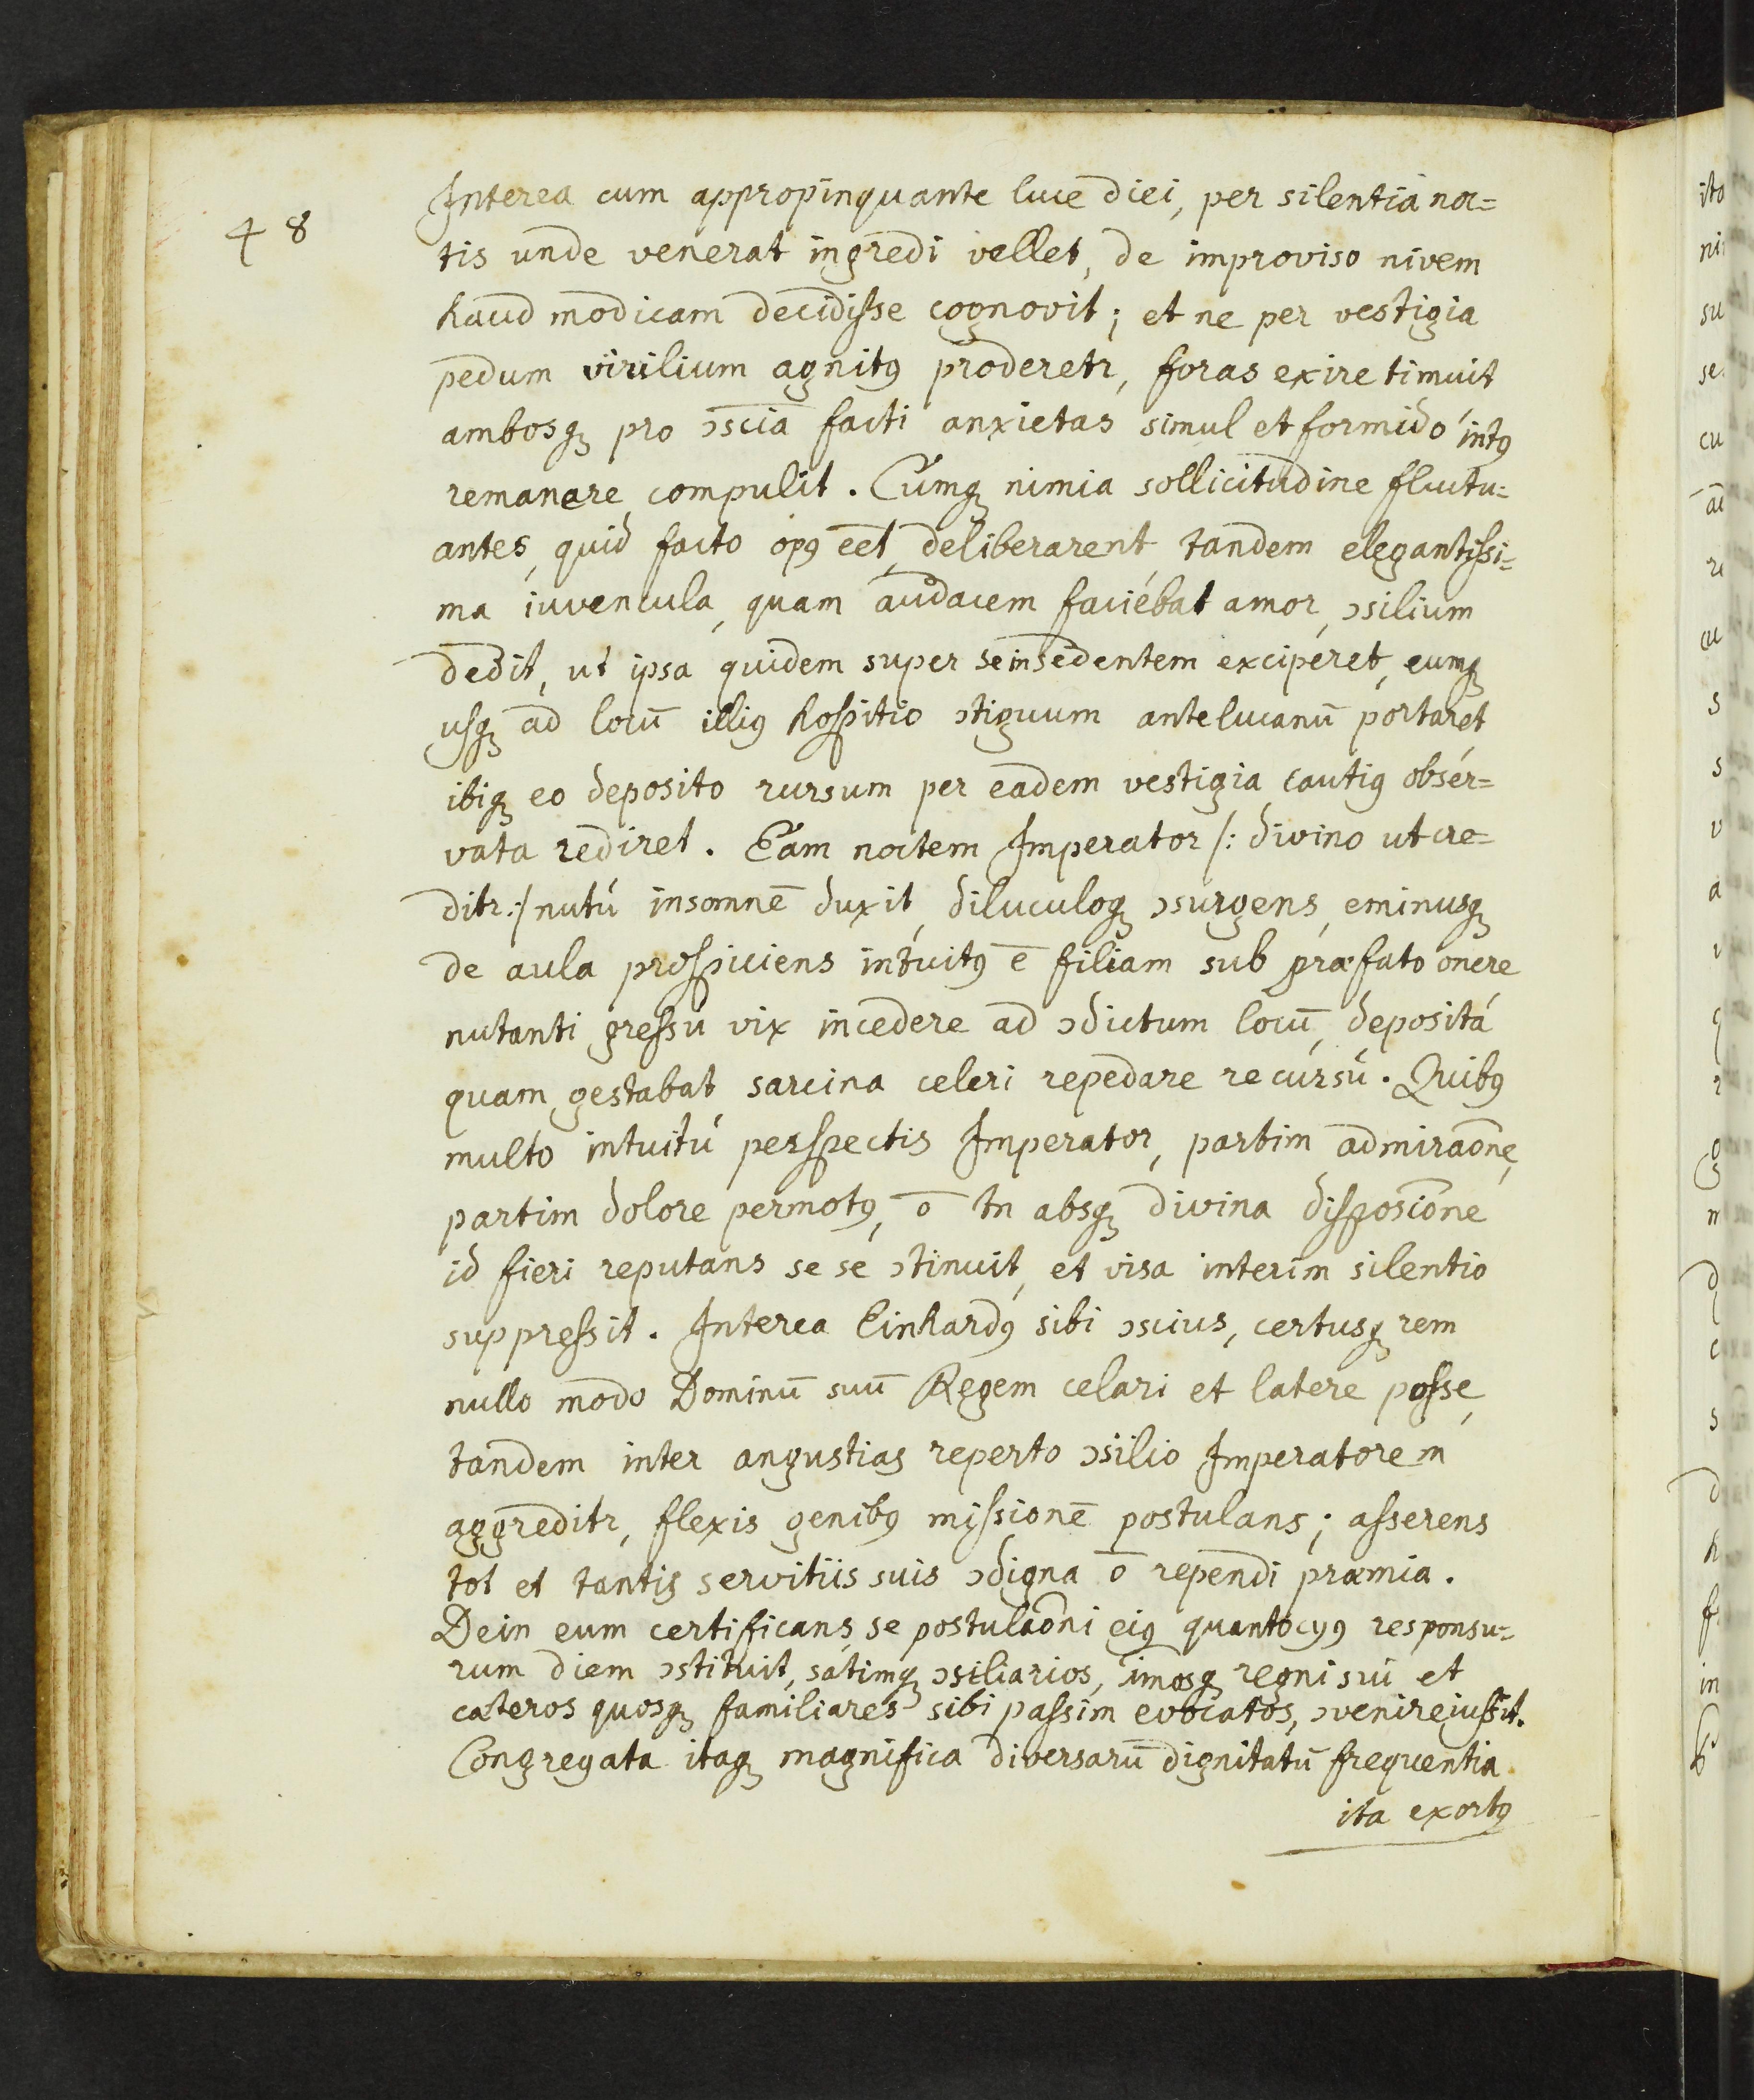 48
Interea cum appropinquante luce diei, per silentia noc=
tis unde venerat ingredi vellet, de improviso nivem
haud modicam decidiſse cognovit; et ne per vestigia
pedum virilium agnitꝰ proderetr, foras exire timuit
ambosqꝫ pro ↄscia facti anxietas simul et formido intꝰ
remanere compulit. Cumqꝫ nimia sollicitudine fluctu=
antes, quid facto opꝰ eēt, deliberarent, tandem elegantiſsi=
ma iuvencula, quam audacem faciebat amor, ↄsilium
dedit, ut ipsa quidem super se insedentem exciperet, eumqꝫ
usqꝫ ad locū illiꝰ hoſpitio ↄtiguum antelucanū portaret
ibiqꝫ eo deposito rursum per eadem vestigia cautiꝰ obser=
vata rediret. Eam noctem Imperator /: divino ut cre=
ditr :/ nutú insomnē duxit, diluculoqꝫ ↄsurgens, eminusqꝫ
de aula proſpiciens intuitꝰ ē filiam sub præfato onere
nutanti greſsu vix incedere ad ↄdictum locū, depositá
quam gestabat sarcina celeri repedare recursú. Quibꝰ
multo intuitú perſpectis Imperator, partim admiraōne,
partim dolore permotꝰ, ō tn absqꝫ divina diſposiōne
id fieri reputans se se ↄtinuit, et visa interim silentio
suppreſsit. Interea Einhardꝰ sibi ↄscius, certusqꝫ rem
nullo modo Dominū suū Regem celari et latere poſse,
tandem inter angustias reperto ↄsilio Imperatorem
aggreditr, flexis genibꝰ miſsionē postulans; aſserens
tot et tantis servitiis suis ↄdigna ō rependi præmia.
Dein eum certificans se postulaōni eiꝰ quantocyꝰ responsu=
rum diem ↄstituit, satimqꝫ ↄsiliarios, imosqꝫ regni sui et
cæteros quosqꝫ familiares sibi paſsim evocatos, ↄvenire iuſsit.
Congregata itaqꝫ magnifica diversarū dignitatū frequentia
ita exortꝰ